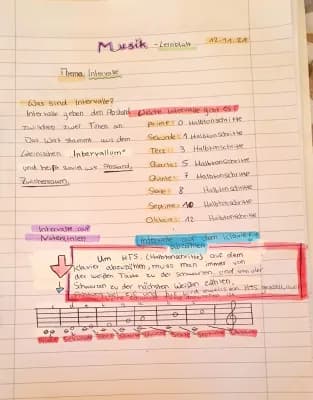 Musik - Lernblatt 12.11.21
Thema: Intervalle
Was sind Intervalle?
Intervalle geben den Abstand
zwischen zwei Tönen an.
Das Wort stammt aus dem
lateinischen "Intervallum"
und heißt soviel wie Abstand,
Zwischenraum.
Welche Intervalle gibt es?
Prime: 0 Halbtonschritte
Sekunde: 1 Halbtonschritte
Terz: 3 Halbtonschritte
Quarte: 5 Halbtonschritte
Quinte: 7 Halbtonschritte
Sexte: 8 Halbtonschritte
Septime: 10 Halbtonschritte
Oktave: 12 Halbtonschritte
Intervalle auf
Notenlinien
Intervalle auf dem Klavier
abzählen
Um HTS. (Halbtonschritte) auf dem
Klavier abzuzählen, muss man immer von
der weißen Taste zu der schwarzen und von der
Schwarzen zu der nächsten weißen zählen.
Prime Sekunde Terz Quarte Quinte Sexte Septime Oktave